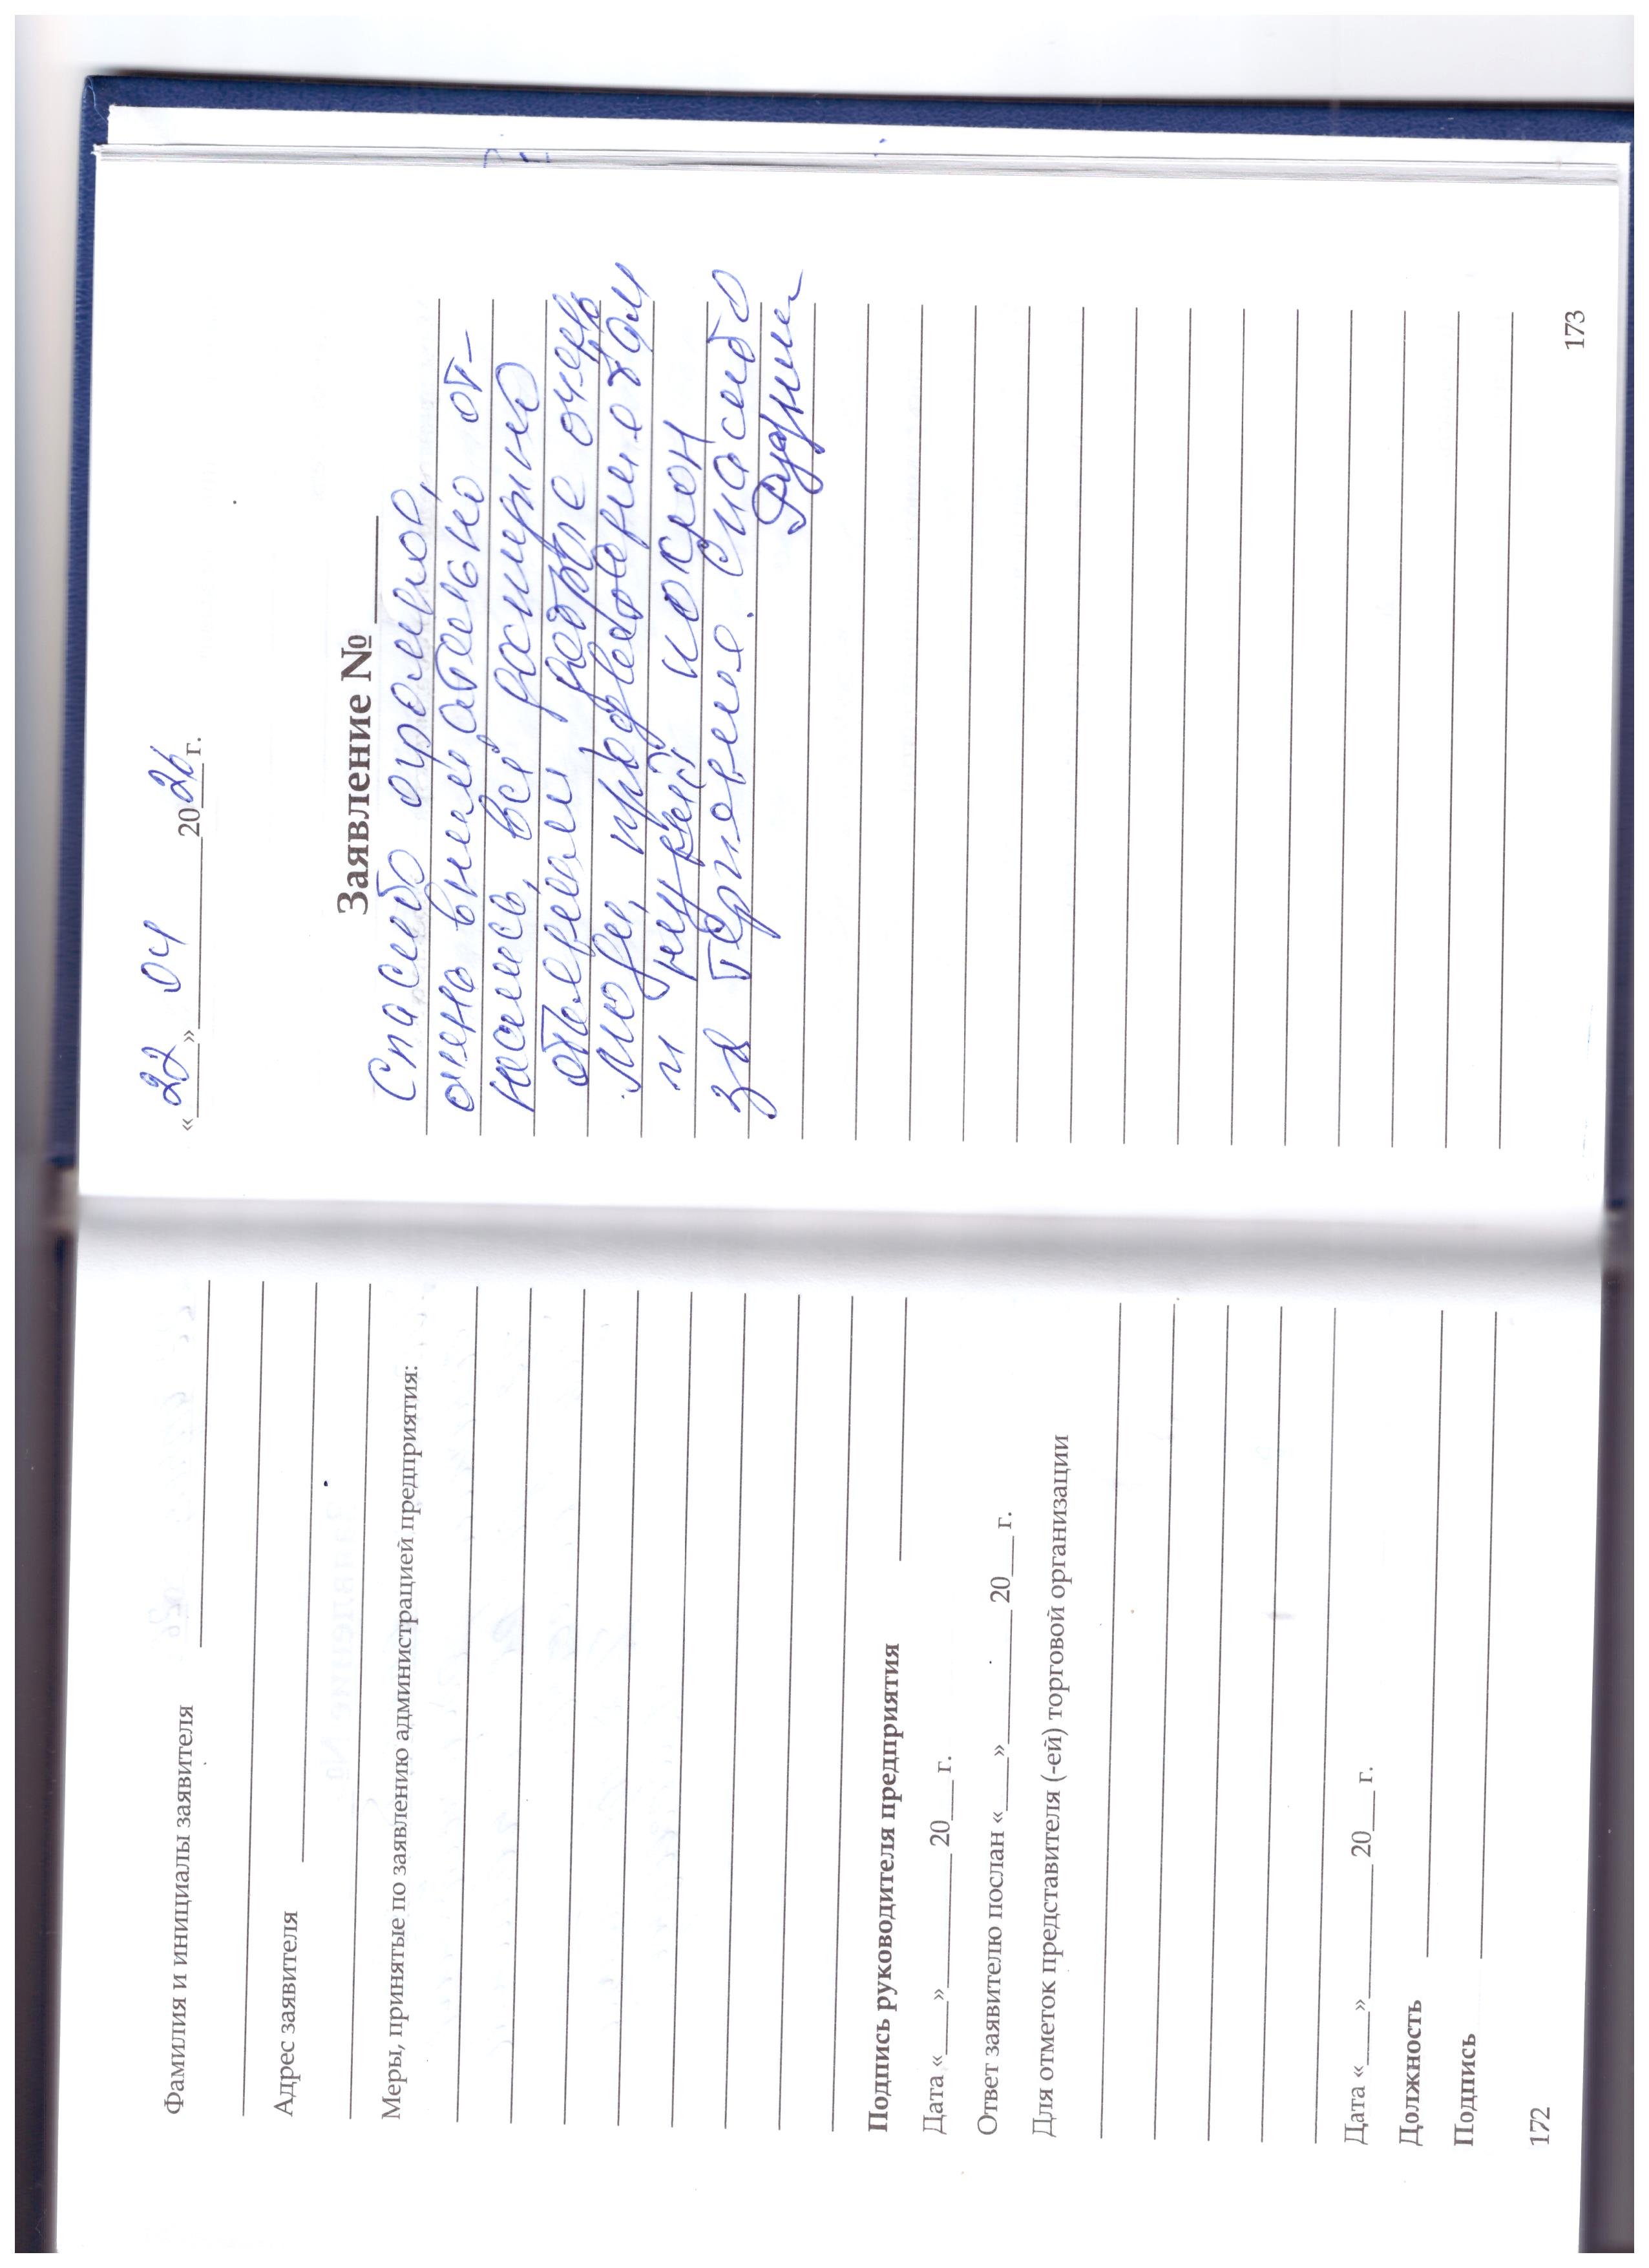 Фамилия и инициалы заявителя
Адрес заявителя
Меры, принятые по заявлению администрацией предприятия:
Подпись руководителя предприятия
Дата «___»________ 20___ г.
Ответ заявителю послан «___»________ 20___ г.
Для отметок представителя (-ей) торговой организации
Дата «___»________ 20___ г.
Должность
Подпись
172
«22» 04 2026 г.
Заявление №
Спасибо огромное,
очень внимательно от-
неслись, всё
очень
люди,
и поклон
за терпение. Спасибо
173